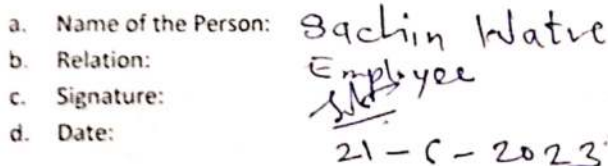 a. Name of the Person: Sachin Watve
b. Relation: Employee
c. Signature:
d. Date: 21-6-2023